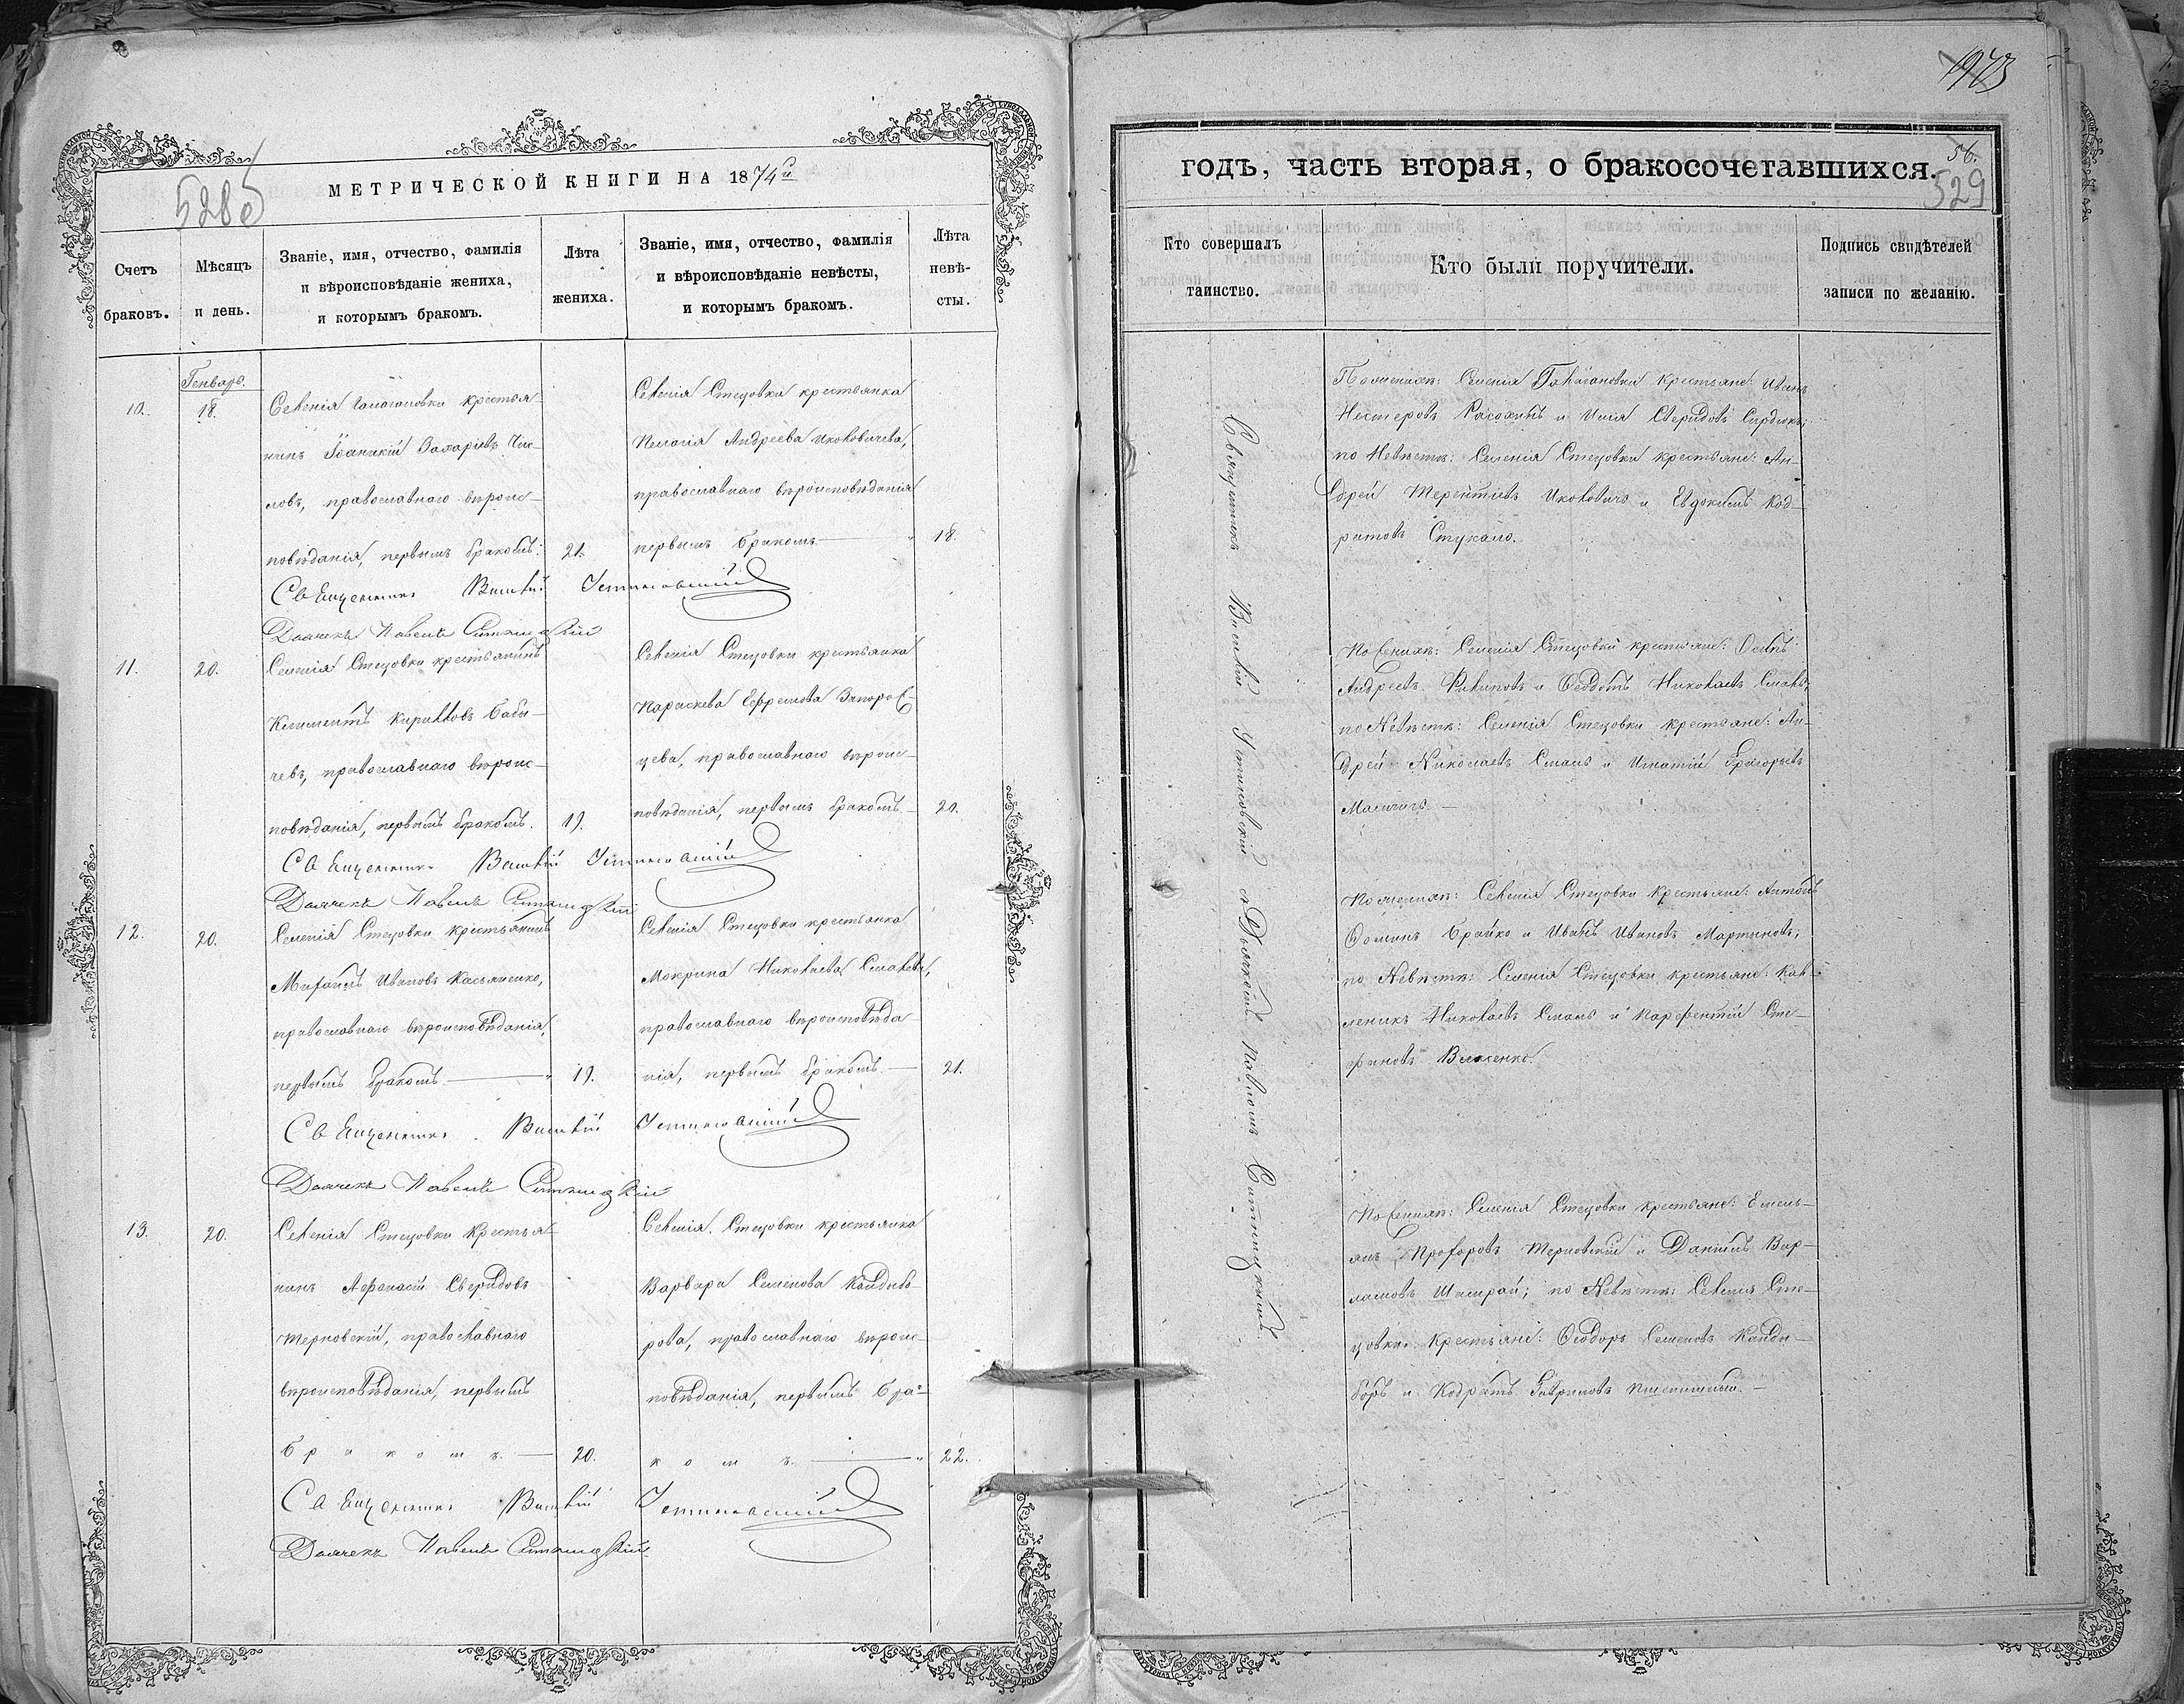 528 об
МЕТРИЧЕСКОЙ КНИГИ НА 1874й
Счетъ
браковъ.
Мѣсяцъ
и день.
Званіе, имя, отчество, фамилія
и вѣроисповѣданіе жениха,
и которымъ бракомъ.
Лѣта
жениха.
Званіе, имя, отчество, фамилія
и вѣроисповѣданіе невѣсты,
и которымъ бракомъ.
Лѣта
невѣ-
сты.
Генварь.
10.
18.
Селенія Галагановки крестья-
нинъ Іоаникій Захаріевъ
ловъ, православнаго вѣроис-
повѣданія, первымъ бракомъ.
21.
Селенія Стецовки крестьянка
Пелагія Андреева Иколовичева,
православнаго вѣроисповѣданія
первымъ бракомъ.
18.
Священникъ Василій Устиновскій
Дьячекъ Павелъ Ситницкій
11.
20.
Селенія Стецовки крестьянинъ
Климентъ Кириловъ Баби-
чевъ, православнаго вѣроис-
повѣданія, первымъ бракомъ.
19.
Селенія Стецовки крестьянка
Параскева Ефремова Запорож-
цева, православнаго вѣроис-
повѣданія, первымъ бракомъ.
20.
Священникъ Василій Устиновскій
Дьячекъ Павелъ Ситницкій
12.
20.
Селенія Стецовки крестьянинъ
Михаилъ Ивановъ Касьяненко,
православнаго вѣроисповѣданія,
первымъ бракомъ
19.
Селенія Стецовки крестьянка
Мокрина Николаева Смалева,
православнаго вѣроисповѣда-
нія, первымъ бракомъ.
21.
Священникъ Василій Устиновскій
Дьячекъ Павелъ Ситницкій
13.
20.
Селенія Стецовки крестья-
нинъ Афанасій Свиридовъ
Терновскій, православнаго
вѣроисповѣданія, первымъ
бракомъ.
20.
Селенія Стецовки крестьянка
Варвара Семенова Кандыбо-
рова, православнаго вѣроис-
повѣданія, первымъ бра-
комъ.
22.
Священникъ Василій Устиновскій
Дьячекъ Павелъ Ситницкій
годъ, часть вторая, о бракосочетавшихся.
56.
529
Кто совершалъ
таинство.
Кто были поручители.
Подпись свидѣтелей
записи по желанію.
Священникъ Василій Устиновскій съ Дьячкомъ Павломъ Ситницкимъ.
По женихѣ: Селенія Галагановки крестьяне: Иванъ
Нестеровъ Расохинъ и Илія Свиридовъ Сирдюкъ;
по Невѣстѣ: Селенія Стецовки крестьяне: Ан-
дрей Терентіевъ Иколовичъ и Евдокимъ Код-
ратовъ Стукало.
По женихѣ: Селенія Стецовки крестьяне: Осипъ
Андреевъ Филиповъ и Феодотъ Николаевъ Смаль;
по Невѣстѣ: Селенія Стецовки крестьяне: Ан-
дрей Николаевъ Смаль и Игнатій Григорьевъ
По женихѣ: Селенія Стецовки крестьяне: Антонъ
Фоминъ Брайко и Иванъ Ивановъ Мартыновъ;
по Невѣстѣ: Селенія Стецовки крестьяне: Кал-
леникъ Николаевъ Смаль и Парфентій Сте-
фановъ Власенко.
По женихѣ: Селенія Стецовки крестьяне: Емель-
янъ Прохоровъ Терновскій и Даніилъ Вар-
ламовъ Шамрай; по Невѣстѣ: Селенія Сте-
цовки крестьяне: Феодоръ Семеновъ Канды-
боръ и Кодратъ Гавриловъ